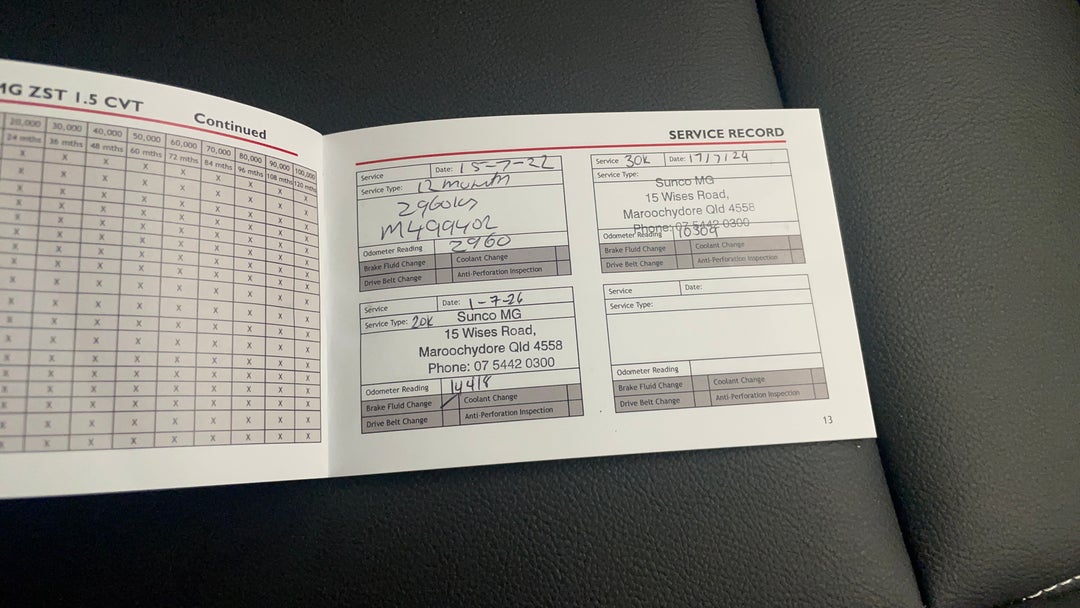 MG ZST 1.5 CVT
Continued
20,000 30,000 40,000 50,000 60,000 70,000 80,000 90,000 100,000
24 mths 36 mths 48 mths 60 mths 72 mths 84 mths 96 mths 108 mths 120 mths
SERVICE RECORD
Service Date: 15-7-22
Service Type: 12 month
2960kms
M499402
Odometer Reading 2960
Brake Fluid Change Coolant Change
Drive Belt Change Anti-Perforation Inspection
Service Date: 1-7-26
Service Type: 20K
Sunco MG
15 Wises Road,
Maroochydore Qld 4558
Phone: 07 5442 0300
Odometer Reading 14418
Brake Fluid Change Coolant Change
Drive Belt Change Anti-Perforation Inspection
Service 30K Date: 17/7/24
Service Type:
Sunco MG
15 Wises Road,
Maroochydore Qld 4558
Phone: 07 5442 0300
Odometer Reading 10309
Brake Fluid Change Coolant Change
Drive Belt Change Anti-Perforation Inspection
Service Date:
Service Type:
Odometer Reading
Brake Fluid Change Coolant Change
Drive Belt Change Anti-Perforation Inspection
13